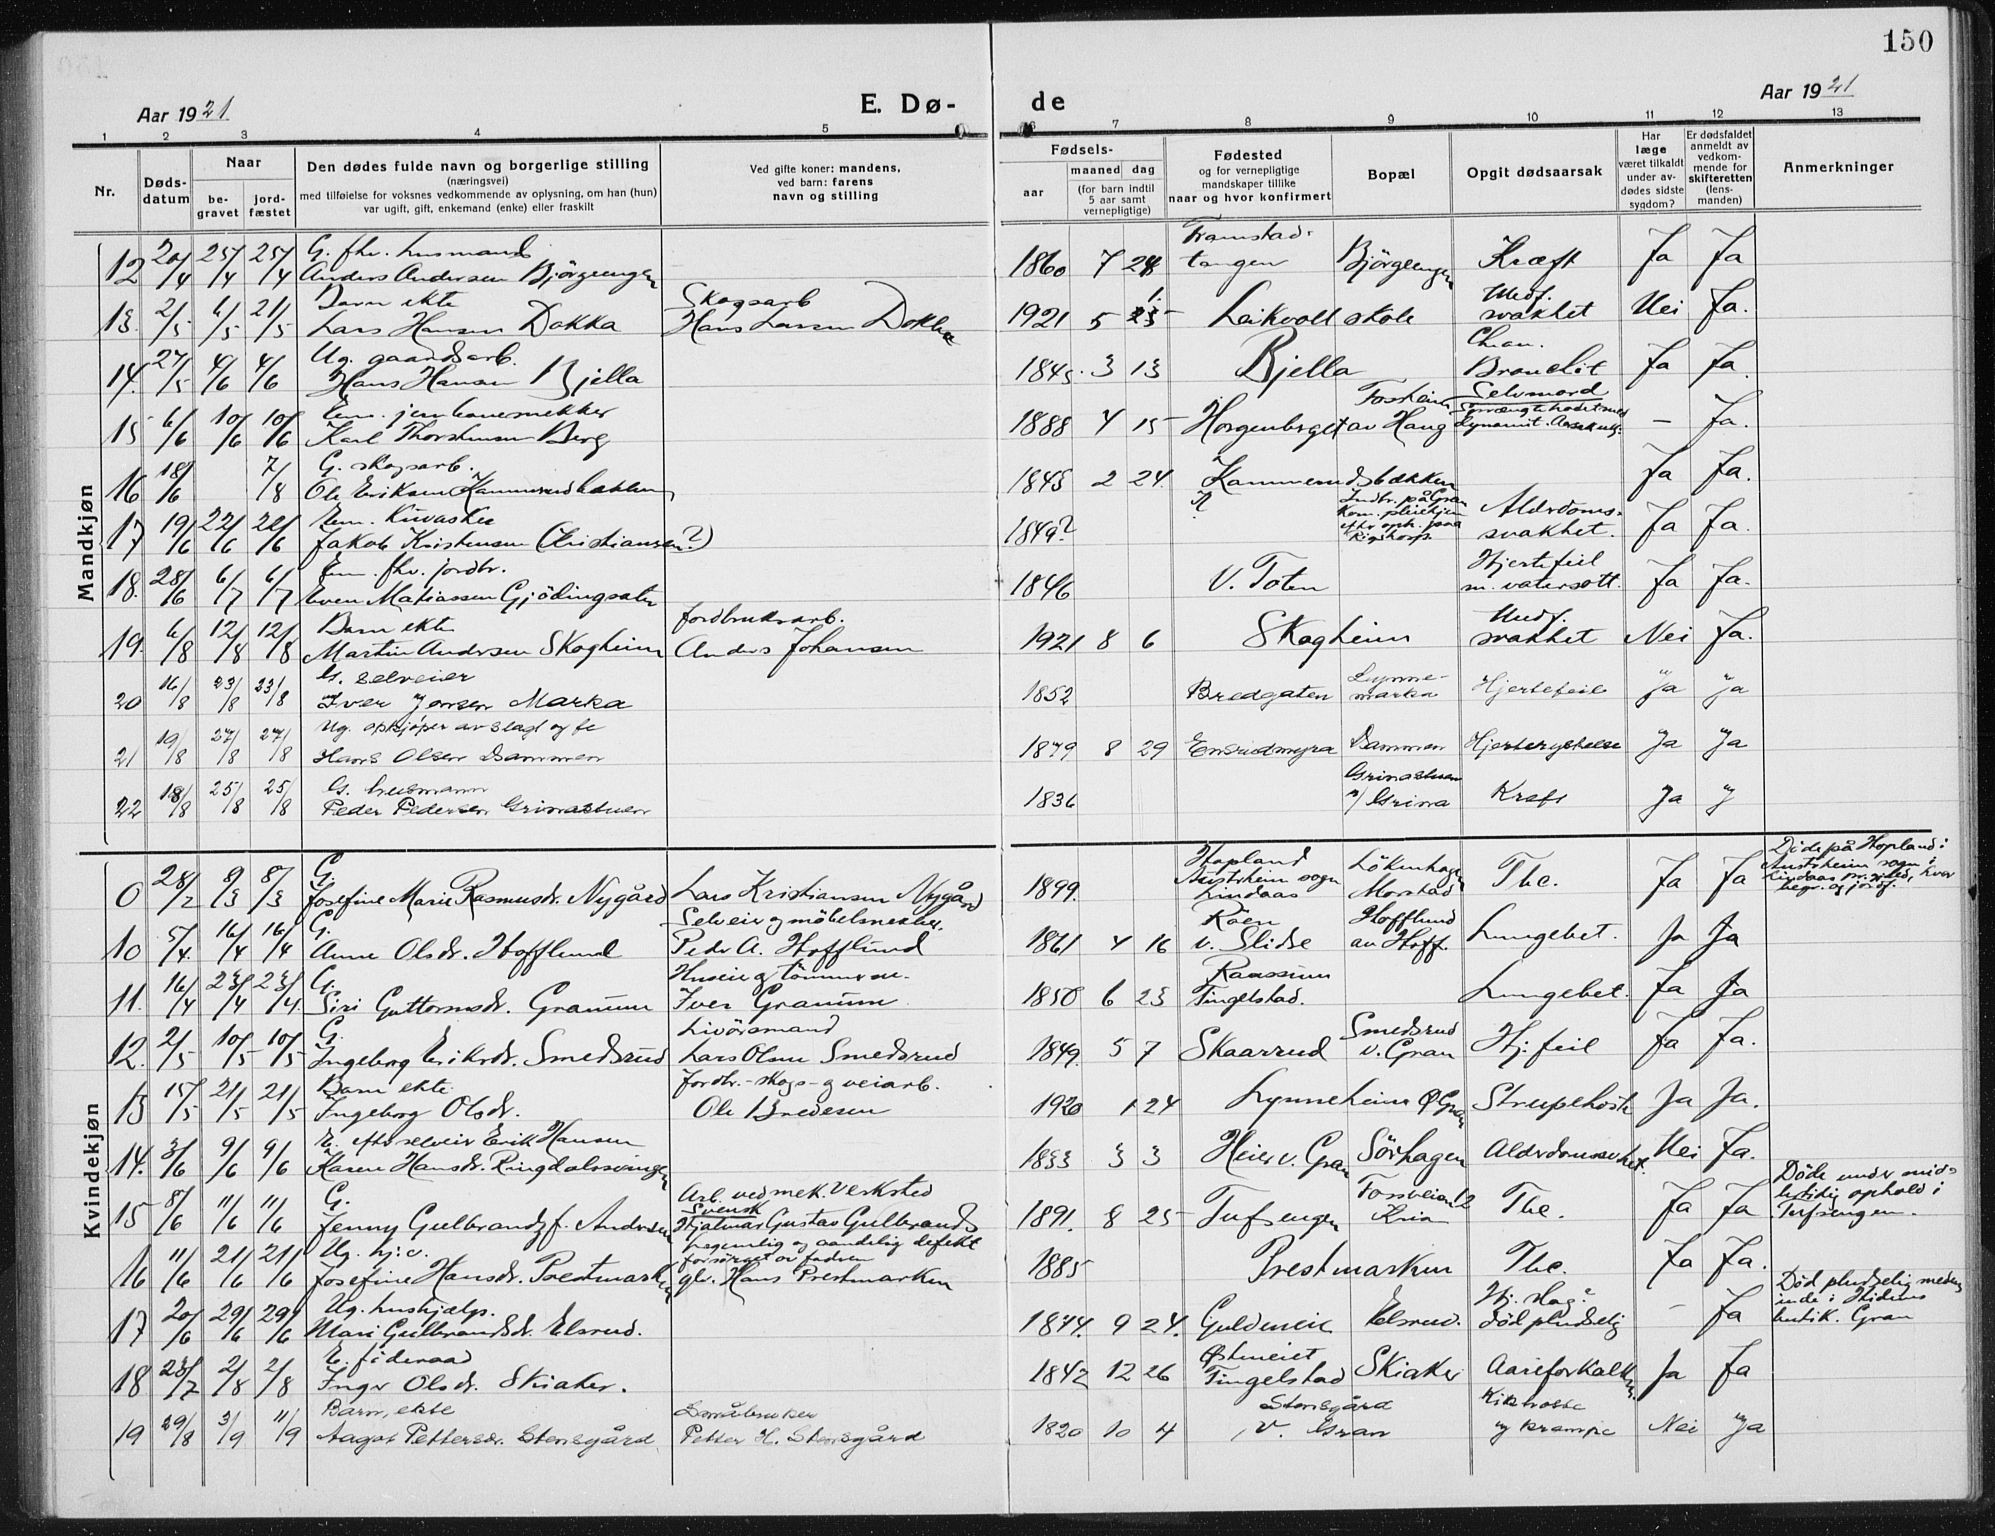 150
Aar 1921
E. Dø-
de
Aar 1921
1 2 3 4 5 6 7 8 9 10 11 12 13
Nr.
Døds-
datum
Naar
be-
gravet
jord-
fæstet
Den dødes fulde navn og borgerlige stilling
(næringsvei)
med tilføielse for voksnes vedkommende av oplysning, om han (hun)
var ugift, gift, enkemand (enke) eller fraskilt
Ved gifte koner: mandens,
ved barn: farens
navn og stilling
Fødsels-
aar
maaned dag
(for barn indtil
5 aar samt
vernepligtige)
Fødested
og for vernepligtige
mandskaper tillike
naar og hvor konfirmert
Bopæl
Opgit dødsaarsak
Har
læge
været tilkaldt
under av-
dødes sidste
sygdom?
Er dødsfaldet
anmeldt av
vedkom-
mende for
skifteretten
(lens-
manden)
Anmerkninger
Mandkjøn
G. fhv. husmand Framstad-
12 20/4 25/4 25/4 Anders Andersen Bjørgeengen 1860 7 28 tangen Bjørgeengen Kræft Ja Ja
Barn ekte Skogsarb 1. Medf.
13. 2/5 6/5 21/5 Lars Hansen Dokka Hans Larsen Dokka 1921 5 Leikvoll skole svakhet Nei Ja.
Ug. gaardsarb. Chron.
14. 27/5 4/6 4/6 Hans Hansen Bjella 1845. 3 13 Bjella Bronchit Ja Ja.
Em. jernbanesnekker Fosheim Selvmord
15 6/6 10/6 10/6 Karl Thorstensen Berg 1888 4 15 Horgenberget av Haug Sprængte hodet med dynamit. - Ja.
G. skogsarb.
16 18/6 7/8 Ole Eriksen Kammerudbækken 1845 2 24. Kammerudsbækken Ja Ja.
Em. Kurvasker ? Indbr. på Gran Alderdoms-
17 19/6 22/6 22/6 Jakob Kristensen (Kristiansen?) 1849? kom. pleiehjem efter oph. paa Rigshosp. svakhet. Ja Ja.
Em. fhv. jordbr. Hjertefeil
18. 28/6 6/7 6/7 Even Matiassen Gjødingsæter 1846 V. Toten m. vatersott. Ja Ja.
Barn ekte Jordbruksarb. Medf.
19. 6/8 12/8 12/8 Martin Andersen Skogheim Anders Johansen 1921 8 6 Skogheim svakhet Nei Ja.
G. selveier Lynne-
20 16/8 23/8 23/8 Iver Jensen Marka 1852 Bredgaten marka Hjertefeil Ja Ja
Ug. opkjøper av slagt og fe
21 19/8 27/8 27/8 Hans Olsen Dammen 1879 8 29 Ensrudmyra Dammen Hjerterystelse Ja Ja
G. husmann Grinastuen
22 18/8 25/8 25/8 Peder Pedersen Grinastuen 1836 u/ Grina Kreft Ja J
Kvindekjøn
G. Hopland Løkenhagen Døde på Hopland i
0 28/2 8/3 8/3 Josefine Marie Rasmusdr. Nygård Lars Kristiansen Nygård 1899. Austrheim sogn Lindaas Morstad Tbc. Ja Ja Austrheim sogn i Lindaas pr.gjeld, hvor begr. og jordf.
G. Selveier og møbelsnekker. Røen Hofflund
10 5/4. 16/4 16/4 Anne Olsdr. Hofflund Peder A. Hofflund 1861 4 16 v. Slidre av Hoff. Lungebet. Ja Ja
G. Huseier og tømmerm. Raassum
11. 16/4 23/4 23/4. Siri Guttormsdr. Granum Iver Granum 1850 6 23 Tingelstad. Lungebet. Ja Ja
G. Livøremand Smedsrud
12. 2/5 10/5 10/5 Ingeborg Eriksdr. Smedsrud Lars Olsen Smedsrud 1849. 5 7 Skaarrud v. Gran Hj. feil Ja Ja.
Barn ekte Jordbr.- skogs- og veiarb.
13 15/5 21/5 21/5 Ingeborg Olsdr. Ole Bredesen 1920 1 24 Lynneheim Ø Gran Strupehoste Ja Ja.
E. efter selveier Erik Hansen
14. 3/6 9/6 9/6 Karen Hansdr. Ringdalssvingen 1833 3 3 Heier v. Gran Sørhagen Alderdomssvhet. Nei Ja.
G. Arb. ved mek. Verksted Fossveien 12 Døde under mid-
15 8/6 11/6 11/6 Jenny Gulbrands f. Andersen Svensk Hjalmar Gustav Gulbrands 1891. 8 25 Tufsengen Kria Tbc. Ja Ja lertidig ophold i Tufsengen.
Ug. hj.v. Legemlig og aandelig defekt forsørget av faderen
16 11/6 21/6 21/6 Josefine Hansdr. Prestmarken glv. Hans Prestmarken 1885 Prestmarken Tbc. Ja Ja.
Ug. hushjælp. Hj. slag? Død pludselig medens
17 20/6 29/6 29/6 Mari Gulbrandsdr. Elsrud. 1844. 9 24. Guldeneie Elsrud. død pludselig - Ja inde i butik. Gran
E. føderaad Østeneiet
18 23/7 2/8 2/8 Inger Olsdr. Skiaker. 1842 12 26 Tingelstad Skiaker Aareforkalkn. Ja Ja
Barn, ekte Småbruker Stensgård Kikhoste
19 29/8 3/9 11/9 Aagot Pettersdr. Stensgård Petter H. Stensgård 1820 10 4 v. Gran og krampe Nei Ja